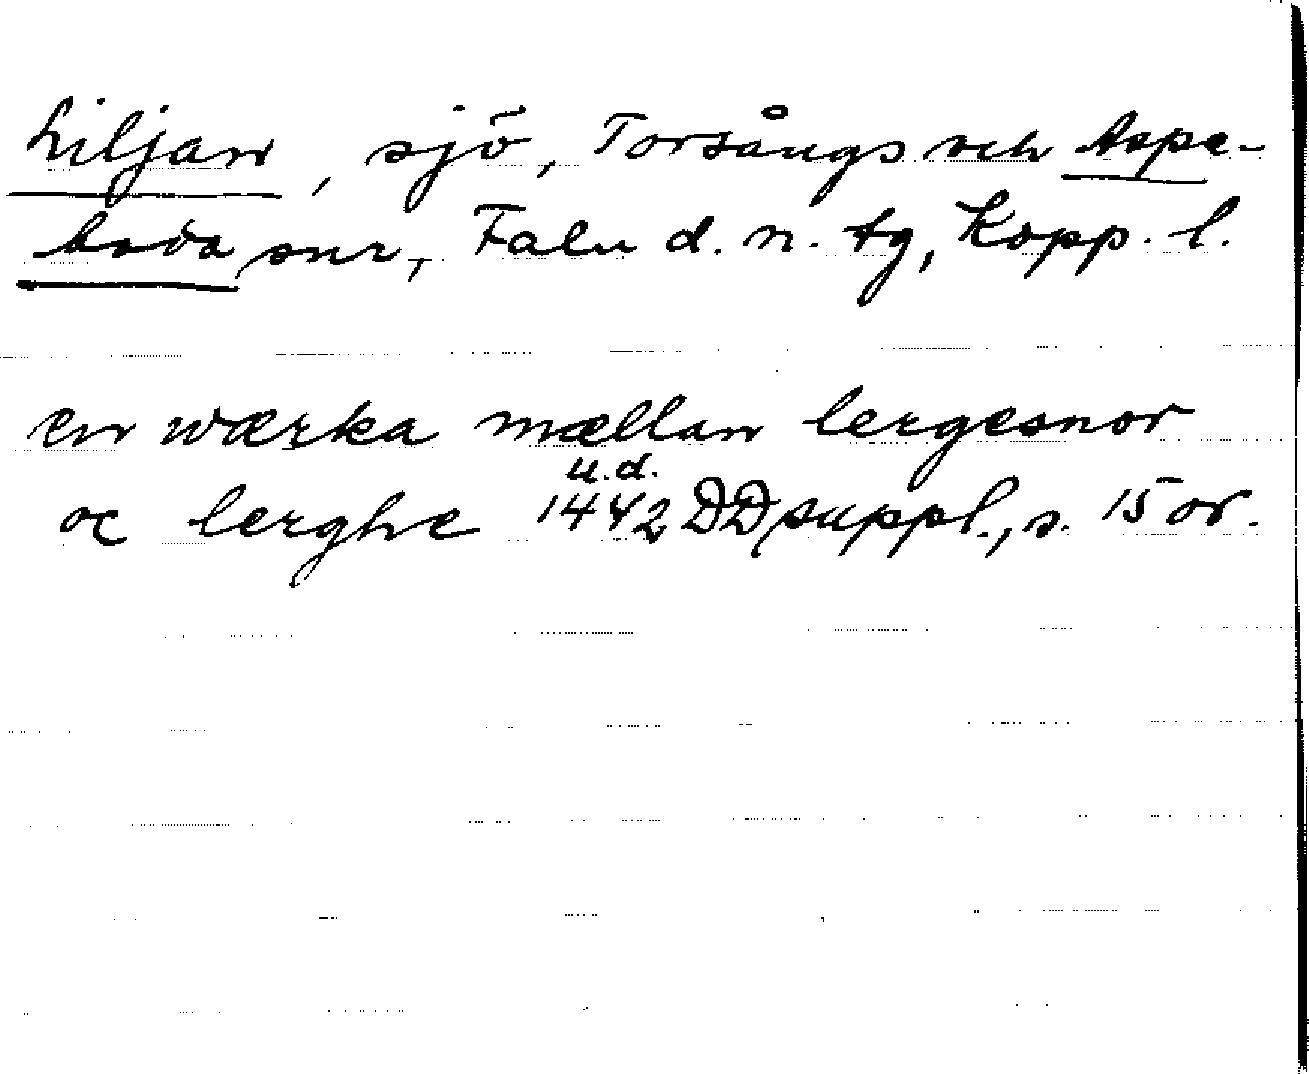 Liljan, sjö, Torsångs och Aspe-
boda snr, Falu d. n. tg, Kopp. l.
en wærka mællan lergesnor
oc lerghe 1442 DD suppl., s. 15 or.
u.d.